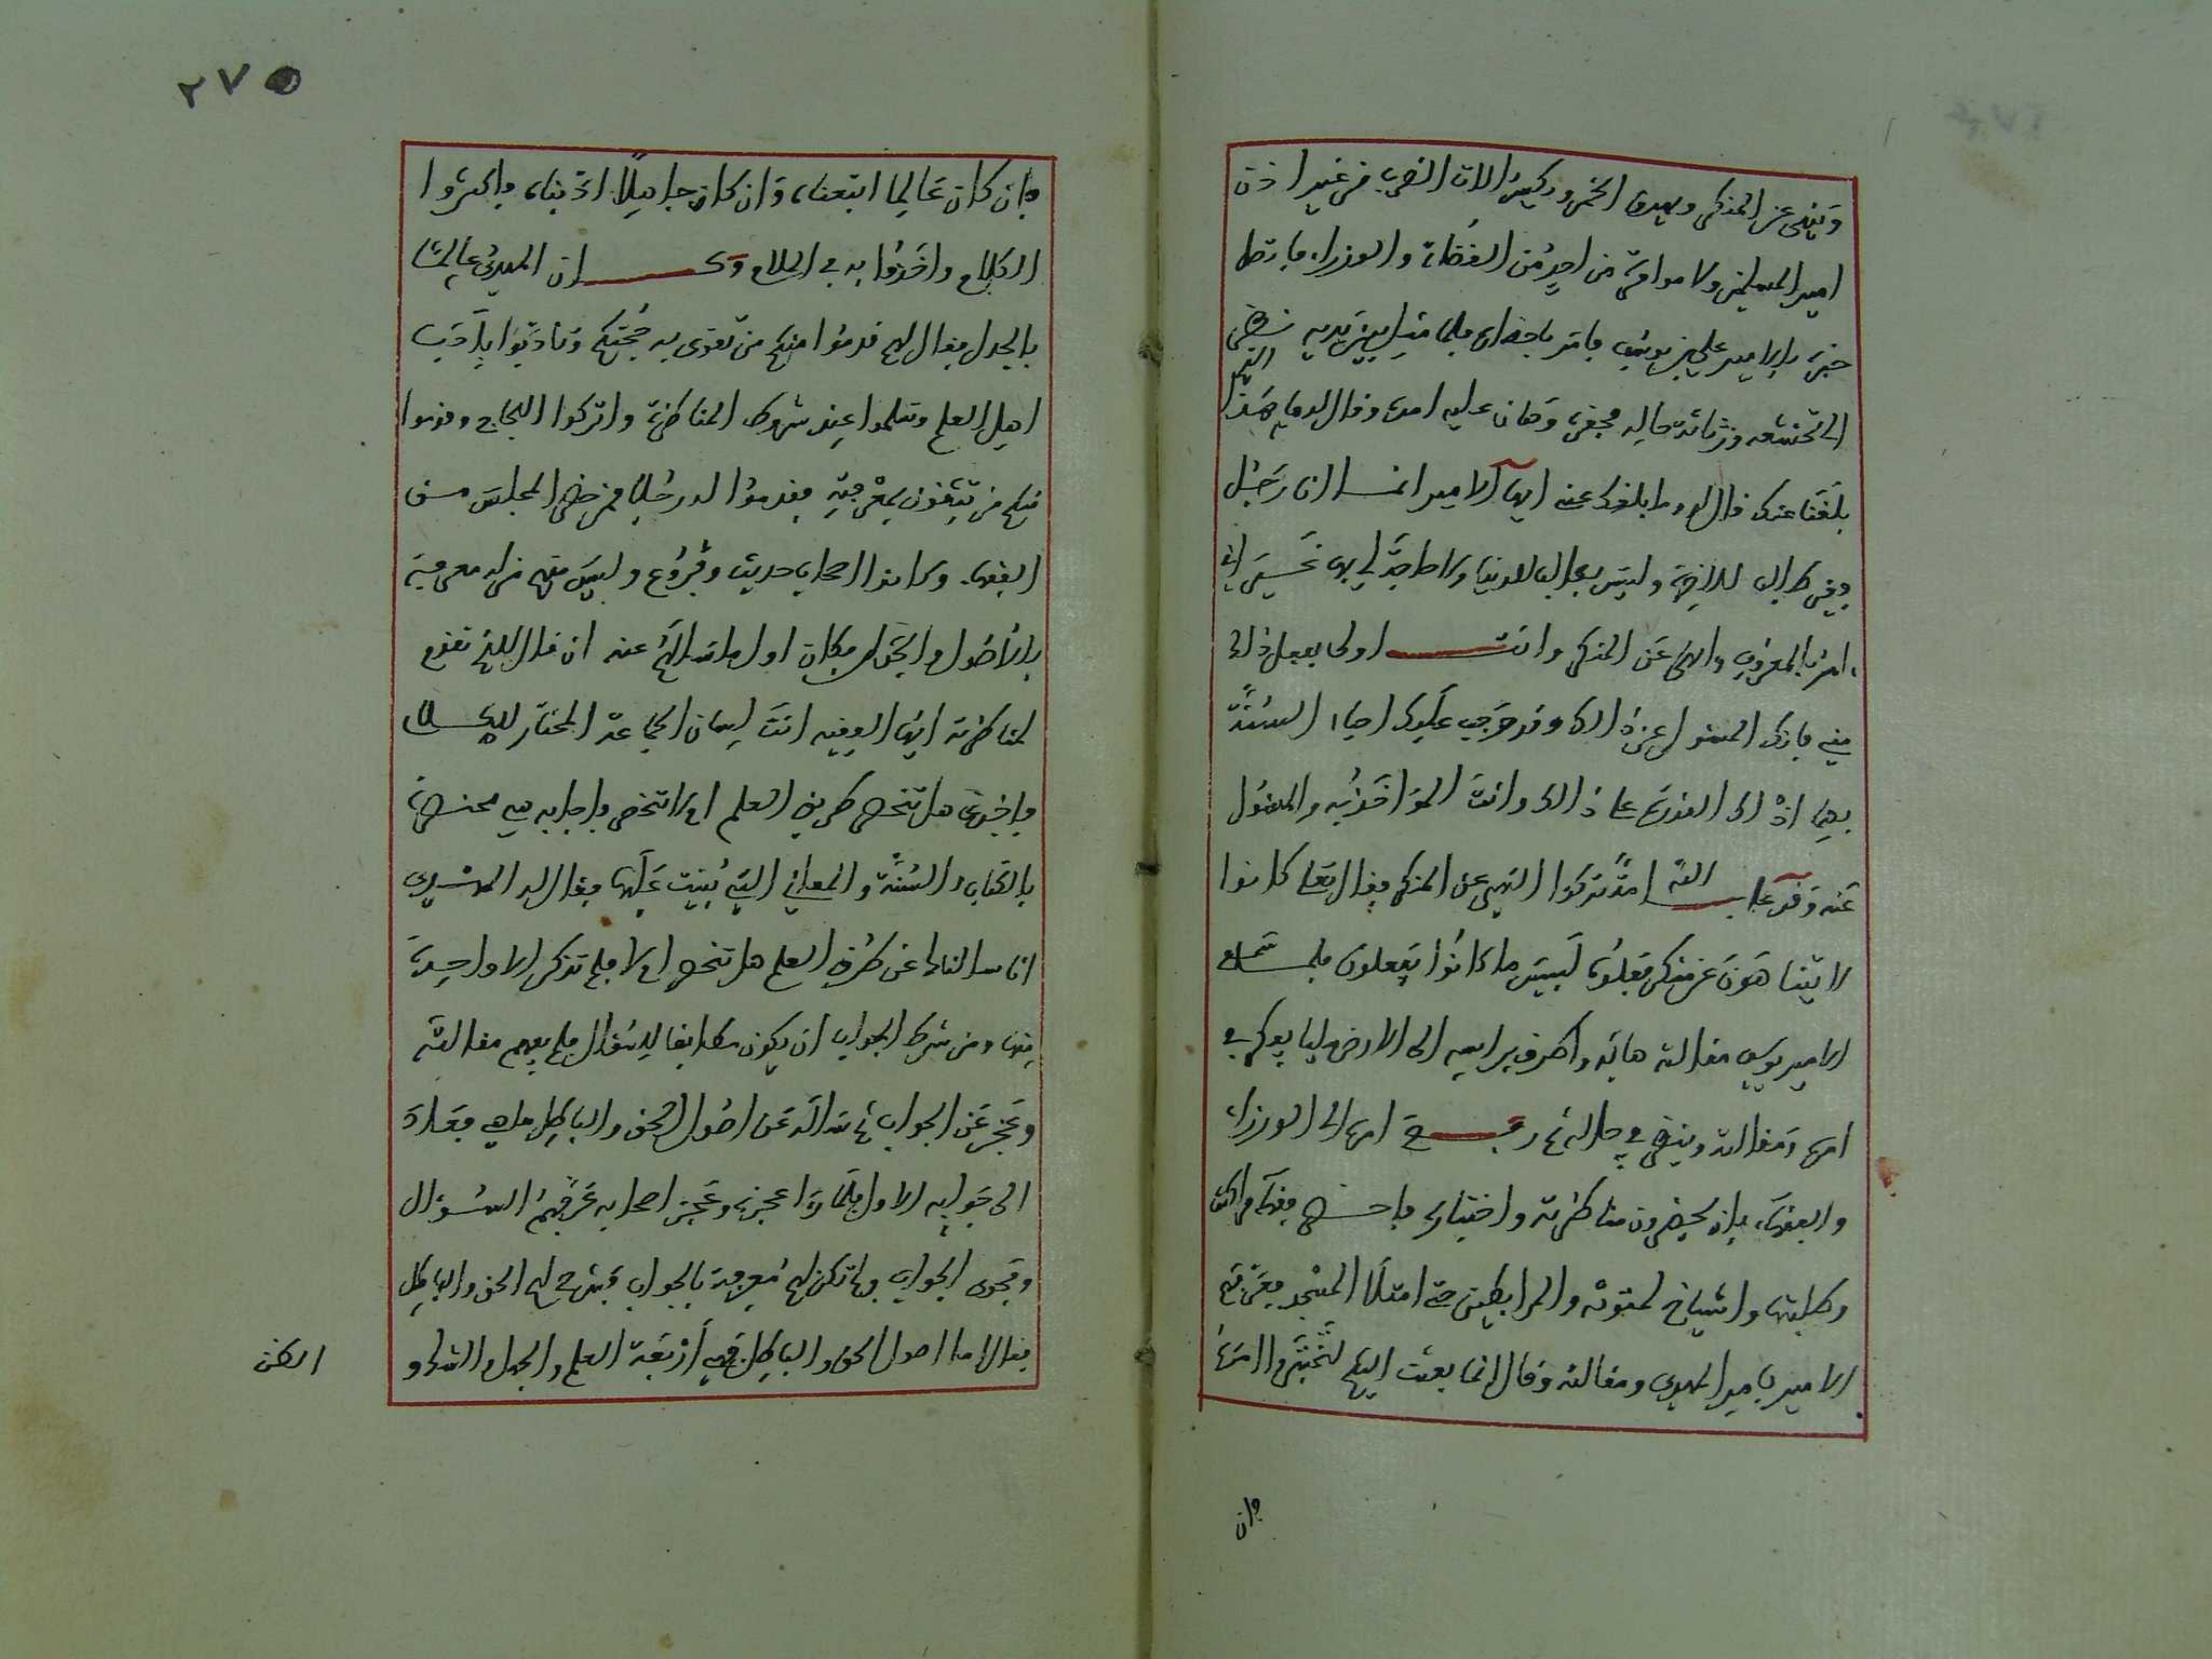 وينهى عن المنكر ويهرق الخمر ويكسر ءالات الضرب من غير اذن
امير المسلمين ولا موافقة من احد من القضاة والوزراء فاتصل
خبره بالامير علي بن يوسف فامر باحضاره فلما مثل بين يديه نظر
الى تخشعه ورثاثة حاله فحقره وهان عليه امره وقال له ما هذا الذي
بلغنا عنك قال له وما بلغك عني ايها الامير انما انا رجل
فقير طالب للاخرة ولست بطالب للدنيا ولا حاجة لي بها غير اني
ءامر بالمعروف وانهى عن المنكر وانت اولى بفعل ذلك
مني فانك المسئول عن ذالك وقد وجب عليك احياء السنة
بها اذ لك القدرة على ذالك وانت المواخذ به والمسئول
عنه وقد عاب الله امة تركوا النهي عن المنكر فقال تعلى كانوا
لا يتناهون عن منكر فعلوه لبيس ما كانوا يفعلون فلما سمع
الامير يوسف مقالته هابه واطرق براسه الى الارض مليا يفكر في
امره ومقالته وينظر في حاله ثم رفع امره الى الوزراء
والفقهاء بان يحضرون مناظرته واختباره فاحضر فقهاء مراكش
وطلبتها واشياخ لمتونة والمرابطين حتى امتلا المسجد فعرفهم
الامير بامر المهدي ومقالته وقال انما بعثت اليكم لتختبروا امره
فان
٢٧٥
فان كان عالما اتبعناه وان كان جاهلا ادبناه فاكثروا
الكلام واخذوا به في الملام وكان المهدي عالما
بالجدل فقال لهم قدموا منكم من تقوى به حجتكم وتادبوا بادب
اهل العلم وتكلموا عند شروط المناظرة واتركوا اللجاج وقدموا
منكم من تثقون بمعرفته فقدموا له رجلا ممن حضر المجلس من
الفقهاء وكانوا اصحاب حديث وفروع وليس منهم من له معرفة
بالاصول والجدل فكان اول ما سأله عنه ان قال للذي تقدم
لمناظرته ايها الفقيه انت لسان الجماعة المختار للكلام
فاخبرني هل تنحصر طرق العلم ام لا تنحصر فاجابه هي محصورة
بالكتاب والسنة والمعاني التي بنيت عليها فقال له المهدي
انا سالتك عن طرق العلم هل تنحصر ام لا فلم تذكر الا واحدة
منها ومن شرط الجواب ان يكون مطابقا للسؤال فلم يفهم مقالته
وعجز عن الجواب ثم سأله عن اصول الحق والباطل ما هي فعاد
الى جوابه الاول فلما رءا عجزه وعجز اصحابه عن فهم السؤال
وفحوى الجواب ولم تكن لهم معرفة بالجواب فشرح لهم الحق والباطل
فقال اما اصول الحق والباطل فهي أربعة العلم والجهل والشك و
الظن